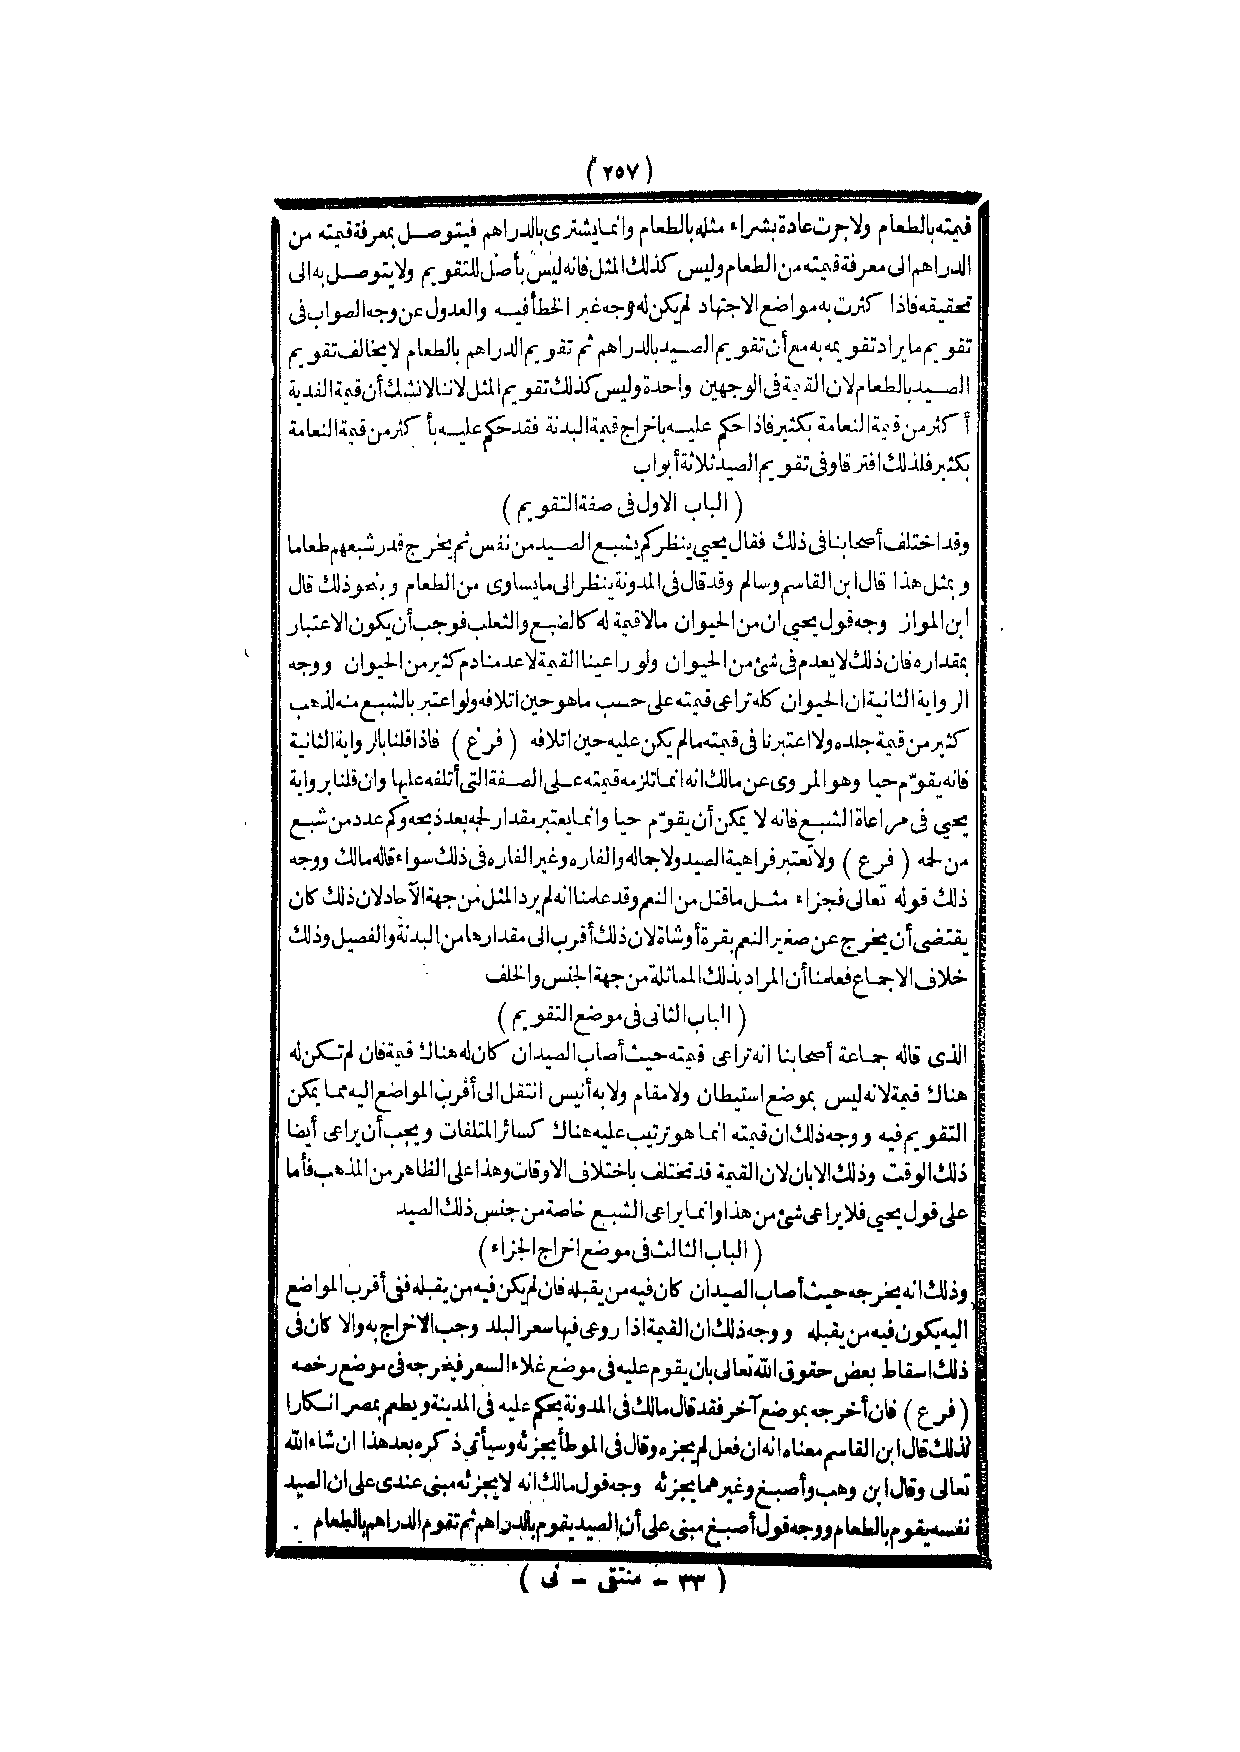 ( ٢٥٧ )
قيمته بالطعام ولا جرت عادة بشراء مثله بالطعام وانما يشترى بالدراهم فيتوصل بمعرفة قيمته من
الدراهم الى معرفة قيمته من الطعام وليس كذلك المثل فانه ليس بأصل للتقويم ولا يتوصل به الى
تحقيقه فاذا كثرت به مواضع الاجتهاد لم يكن له وجه غير الخطأ فيه والعدول عن وجه الصواب فى
تقويم ما يراد تقويمه به مع أن تقويم الصيد بالدراهم ثم تقويم الدراهم بالطعام لا يخالف تقويم
الصيد بالطعام لان القيمة فى الوجهين واحدة وليس كذلك تقويم المثل لاننا لا نشك أن قيمة الفدية
أكثر من قيمة النعامة بكثير فاذا حكم عليه باخراج قيمة البدنة فقد حكم عليه بأكثر من قيمة النعامة
بكثير فلذلك افترقا وفى تقويم الصيد ثلاثة أبواب
( الباب الاول فى صفة التقويم )
وقد اختلف أصحابنا فى ذلك فقال يحيى ينظر كم يشبع الصيد من نفس ثم يخرج قدر شبعهم طعاما
وبمثل هذا قال ابن القاسم وسالم وقد قال فى المدونة ينظر الى ما يساوى من الطعام وبنحو ذلك قال
ابن المواز وجه قول يحيى ان من الحيوان مالا قيمة له كالضبع والثعلب فوجب أن يكون الاعتبار
بمقداره فان ذلك لا يعدم فى شئ من الحيوان ولو راعينا القيمة لاعدمنا دم كثير من الحيوان ووجه
الرواية الثانية ان الحيوان كله تراعى قيمته على حسب ما هو حين اتلافه ولو اعتبر بالشبع منه لذهب
كثير من قيمة جلده ولا اعتبرنا فى قيمته مالم يكن عليه حين اتلافه ( فرع ) فاذا قلنا بالرواية الثانية
فانه يقوّم حيا وهو المروى عن مالك انه انما تلزمه قيمته على الصفة التى أتلفه عليها وان قلنا برواية
يحيى فى مراعاة الشبع فانه لا يمكن أن يقوّم حيا وانما يعتبر مقدار لحمه بعد ذبحه وكم عدد من شبع
من لحمه ( فرع ) ولا تعتبر فراهية الصيد ولا جماله والفاره وغير الفاره فى ذلك سواء قاله مالك ووجه
ذلك قوله تعالى فجزاء مثل ما قتل من النعم وقد علمنا انه لم يرد المثل من جهة الآحاد لان ذلك كان
يقتضى أن يخرج عن صغير النعم بقرة أو شاة لان ذلك أقرب الى مقدارها من البدنة والفصيل وذلك
خلاف الاجماع فعلمنا أن المراد بذلك المماثلة من جهة الجنس والخلف
( الباب الثانى فى موضع التقويم )
الذى قاله جماعة أصحابنا انه تراعى قيمته حيث أصاب الصيد ان كان له هناك قيمة فان لم تكن له
هناك قيمة لانه ليس بموضع استيطان ولا مقام ولا به أنيس انتقل الى أقرب المواضع اليه مما يمكن
التقويم فيه ووجه ذلك ان قيمته انما هو ترتيب عليه هناك كسائر المتلفات ويجب أن يراعى أيضا
ذلك الوقت وذلك الابان لان القيمة قد تختلف باختلاف الاوقات وهذا على الظاهر من المذهب فأما
على قول يحيى فلا يراعى شئ من هذا وانما يراعى الشبع خاصة من جنس ذلك الصيد
( الباب الثالث فى موضع اخراج الجزاء )
وذلك انه يخرجه حيث أصاب الصيد ان كان فيه من يقبله فان لم يكن فيه من يقبله ففى أقرب المواضع
اليه يكون فيه من يقبله ووجه ذلك ان القيمة اذا روعى فيها سعر البلد وجب الاخراج به والا كان فى
ذلك اسقاط بعض حقوق الله تعالى بان يقوم عليه فى موضع غلاء السعر فيخرجه فى موضع رخصه
( فرع ) فان أخرجه بموضع آخر فقد قال مالك فى المدونة يحكم عليه فى المدينة ويطعم بمصر انكارا
لذلك قال ابن القاسم معناه انه ان فعل لم يجزه وقال فى الموطأ يجزئه وسيأتى ذكره بعد هذا ان شاء الله
تعالى وقال ابن وهب وأصبغ وغيرهما يجزئه وجه قول مالك انه لا يجزئه مبنى عندى على ان الصيد
نفسه يقوم بالطعام ووجه قول أصبغ مبنى على أن الصيد يقوم بالدراهم ثم تقوم الدراهم بالطعام
( ٣٣ - منتقى - نى )